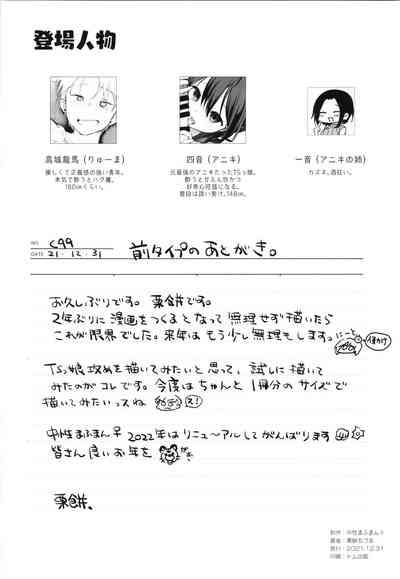 登場人物
高城龍馬（りゅーま）
優しくて正義感の強い青年。
本気で酔うとハグ魔。
180㎝くらい。
四音（アニキ）
元最強のアニキだったTSっ娘。
酔うと甘えん坊かつ
好奇心旺盛になる。
普段は誘い受け。148㎝。
一音（アニキの姉）
カズネ。酒狂い。
NO. C99
DATE 21・12・31
前タイプのあとがき。
お久しぶりです。栗餅です。
2年ぶりに漫画をつくるとなって無理せず描いたら
これが限界でした。来年はもう少し無理もします。にーと
TSっ娘攻めを描いてみたいと思って、試しに描いて
みたのがコレです。今度はちゃんと1冊分のサイズで
描いてみたいっスね
中性まふまん♀2022年はリニューアルしてがんばります
皆さん良いお年を
栗餅。
制作：中性まふまん♀
著者：栗餅ちづる
発行：2021.12.31
印刷：トム出版